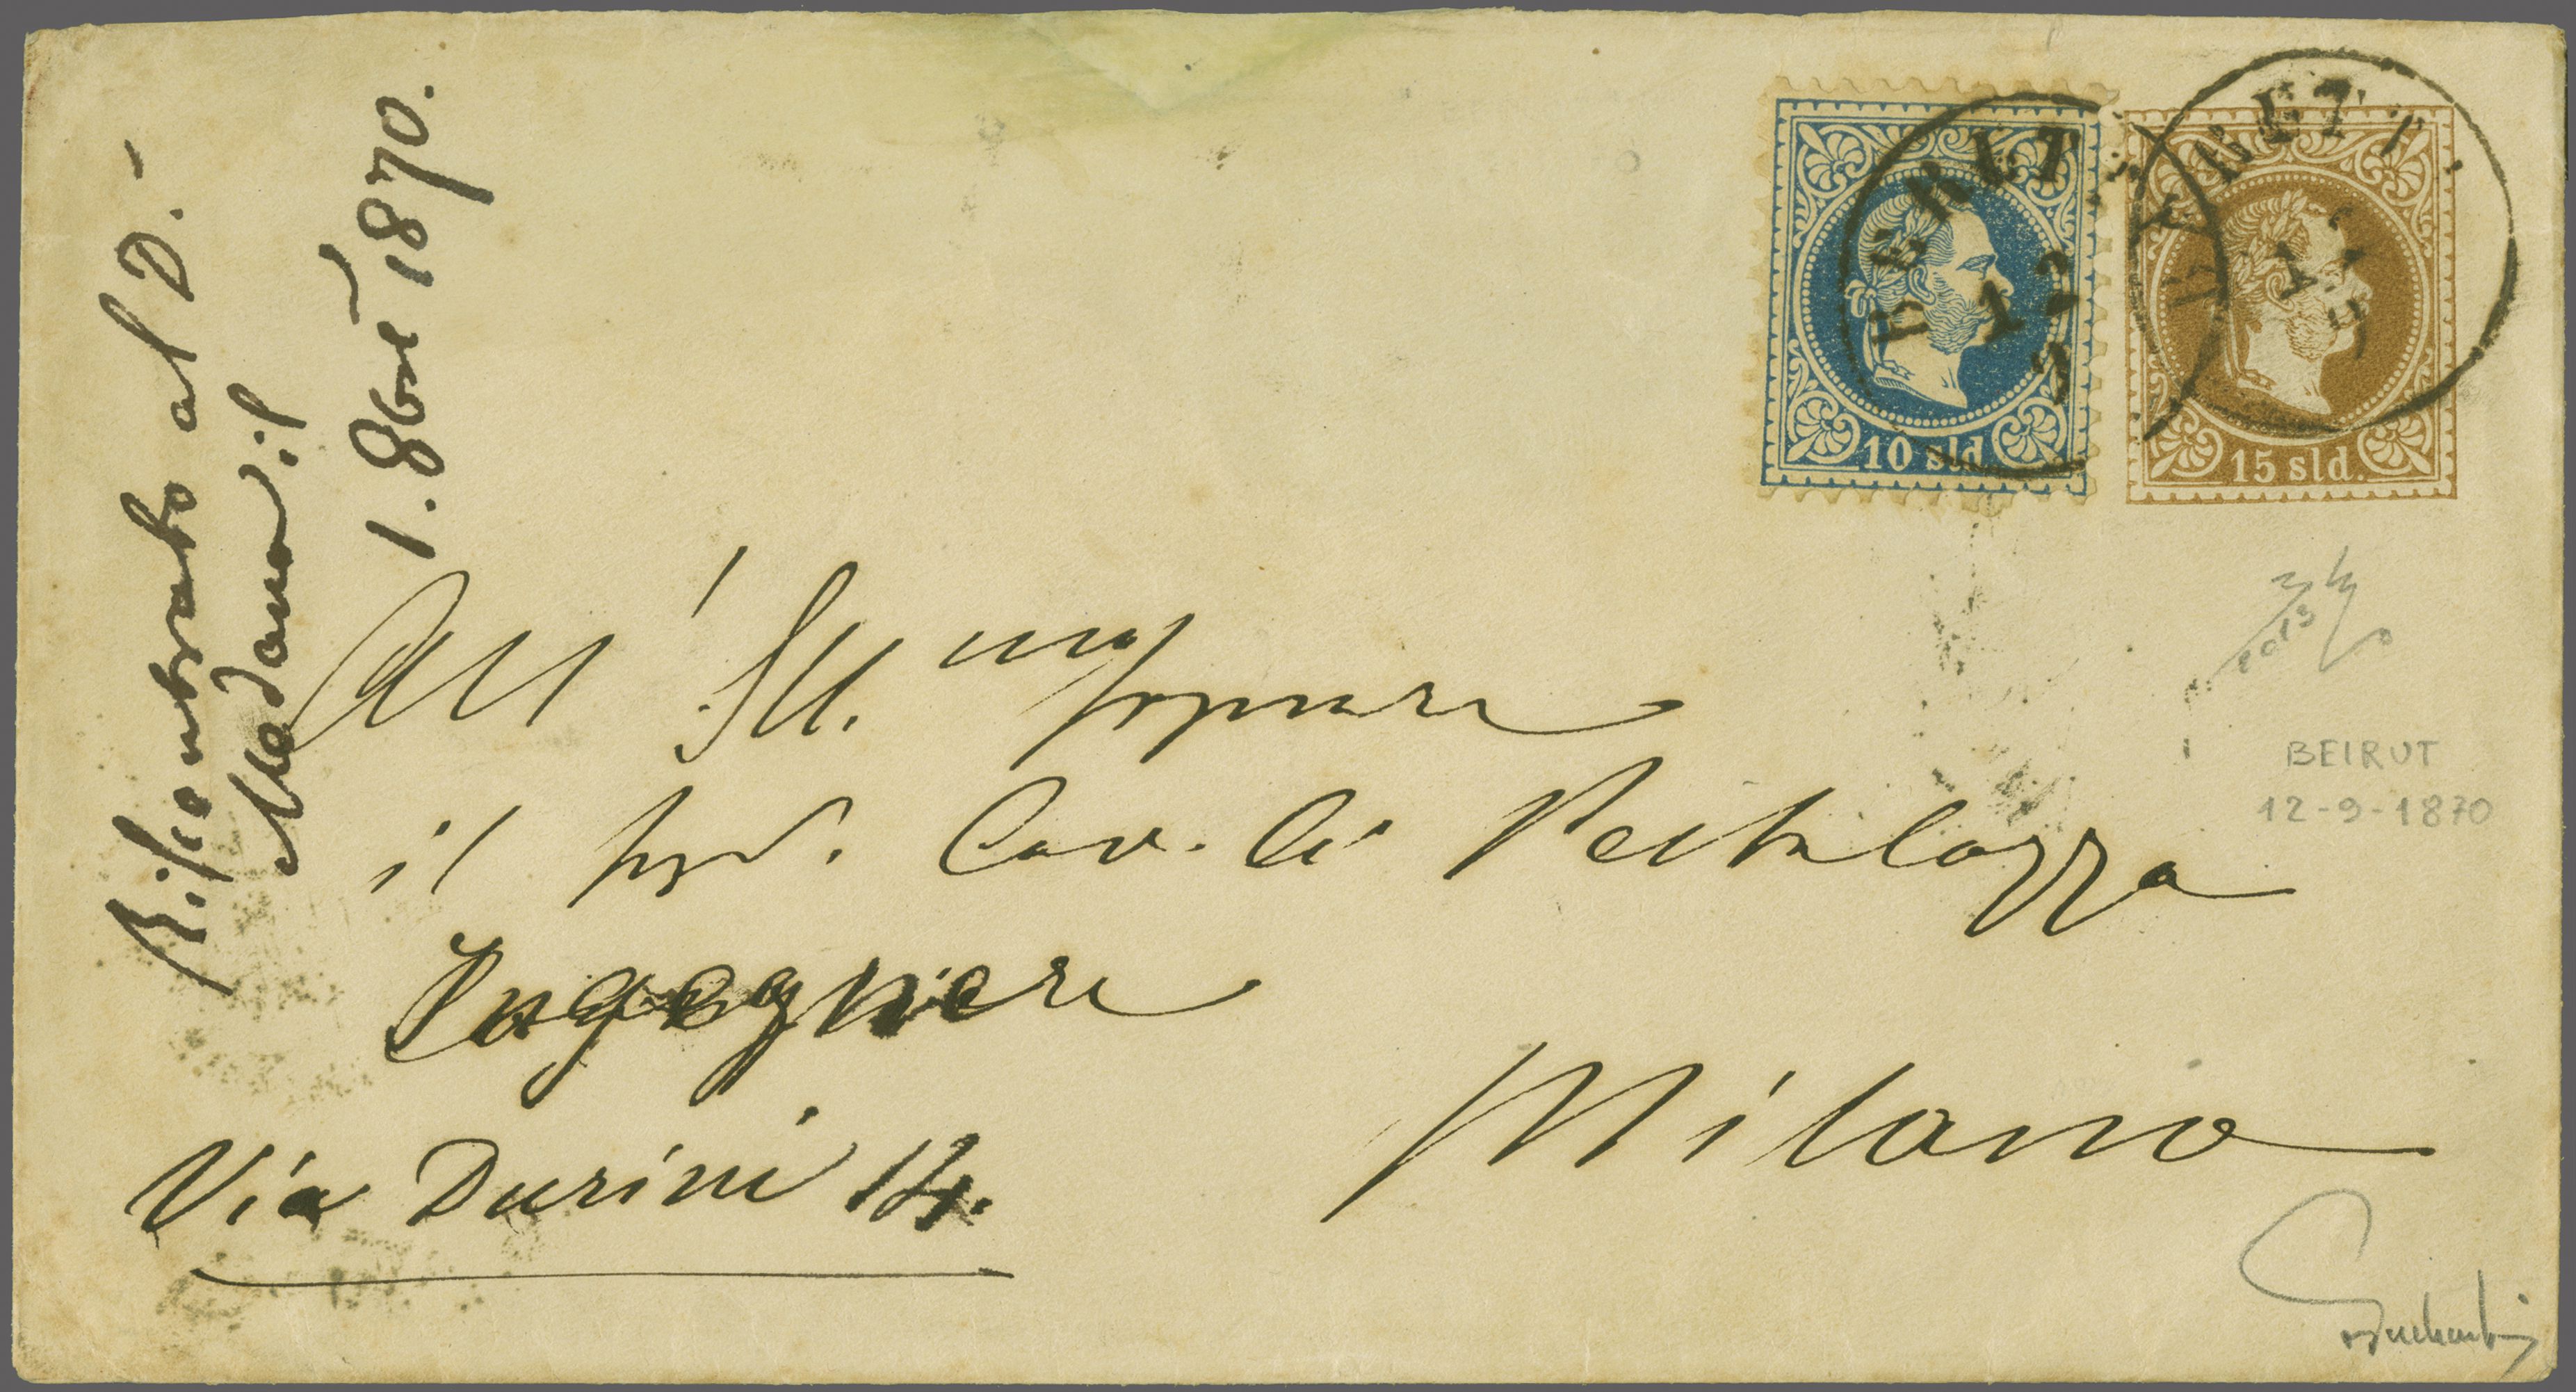 Riscontrato al D.
Madama il
1. 8bre 1870.
10 sld
15 sld.
12
9
All' Ill.mo Signore
il Sigr. Cav.
Pestalozza
Ingegnere
Via Durini 14.
Milano
BEIRUT
12-9-1870